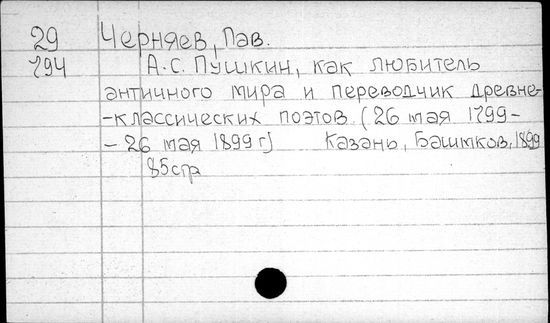 29 Черняев, Пав.
794 А.С. Пушкин, как любитель
античного мира и переводчик древне-
-классических поэтов. (26 мая 1799-
- 26 мая 1899 г) Казань, Башмков, 1899
85стр